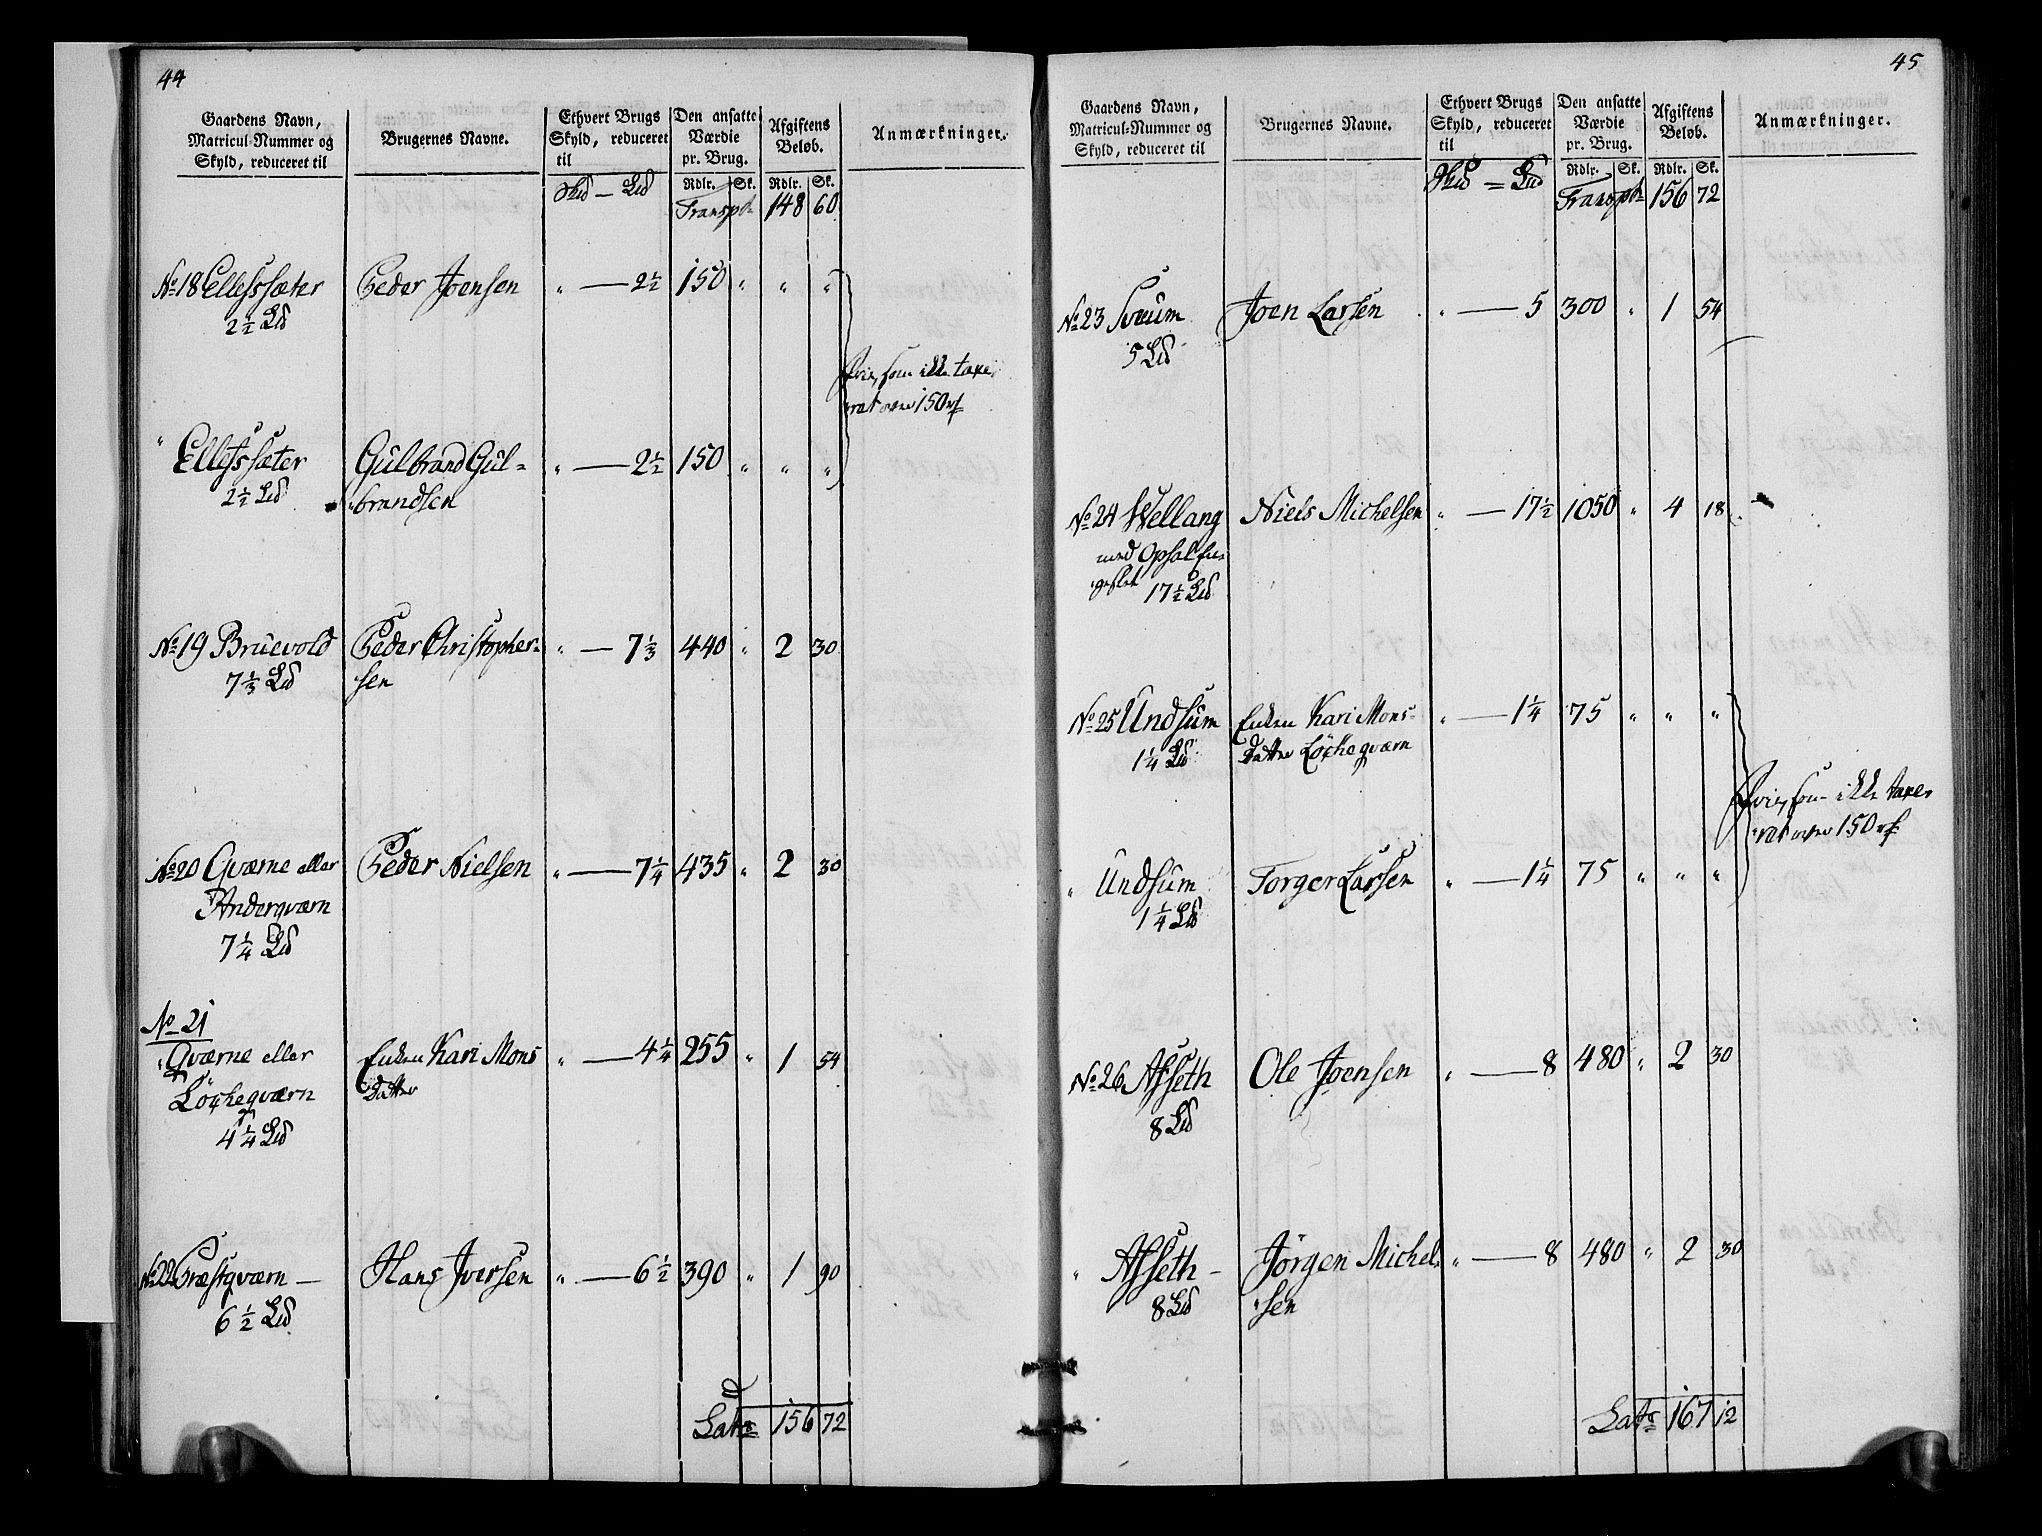 44
Gaardens Navn,
Matricul-Nummer og
Skyld, reduceret til
Brugernes Navne.
Ethvert Brugs
Skyld, reduceret
til
Den ansatte
Værdie
pr. Brug.
Afgiftens
Beløb.
Anmærkninger.
Rdlr. Sk. Rdlr. Sk.
Hud — Ld
Transpt 148 60
No 18 Ellefssæter Peder Joensen " — 2½ 150 " " "
2½ Ld
frie, som ikke taxe-
ret over 150 rd
" Ellefssæter Gulbrand Gul- " — 2½ 150 " " "
2½ Ld brandsen
No 19 Bruevold Peder Christopher- " — 7⅓ 440 " 2 30
7⅓ Ld sen
No 20 Qværne eller Peder Nielsen " — 7¼ 435 " 2 30
Anderqværn
7¼ Ld
No 21
Qværne eller Enken Kari Mons " — 4¼ 255 " 1 54
Löckeqværn Datter
4¼ Ld
No 22 Præstqværn — Hans Iversen " — 6½ 390 " 1 90
6½ Ld
Lats 156 72
45
Gaardens Navn,
Matricul-Nummer og
Skyld, reduceret til
Brugernes Navne.
Ethvert Brugs
Skyld, reduceret
til
Den ansatte
Værdie
pr. Brug.
Afgiftens
Beløb.
Anmærkninger.
Rdlr. Sk. Rdlr. Sk.
Hud — Ld
Transpt 156 72
No 23 Sveum Joen Larsen " — 5 300 " 1 54
5 Ld
No 24 Wellang Niels Michelsen " — 17½ 1050 " 4 18
med Opsal En-
geslet 17½ Ld
No 25 Undsum Enken Kari Mons- " — 1¼ 75 " " "
1¼ Ld Datter Löckeqværn
frie, som ikke taxe-
ret over 150 rd
" Undsum Torger Larsen " — 1¼ 75 " " "
1¼ Ld
No 26 Afseth Ole Joensen " — 8 480 " 2 30
8 Ld
" Afseth — Jörgen Michel- " — 8 480 " 2 30
8 Ld sen
Lats 167 12